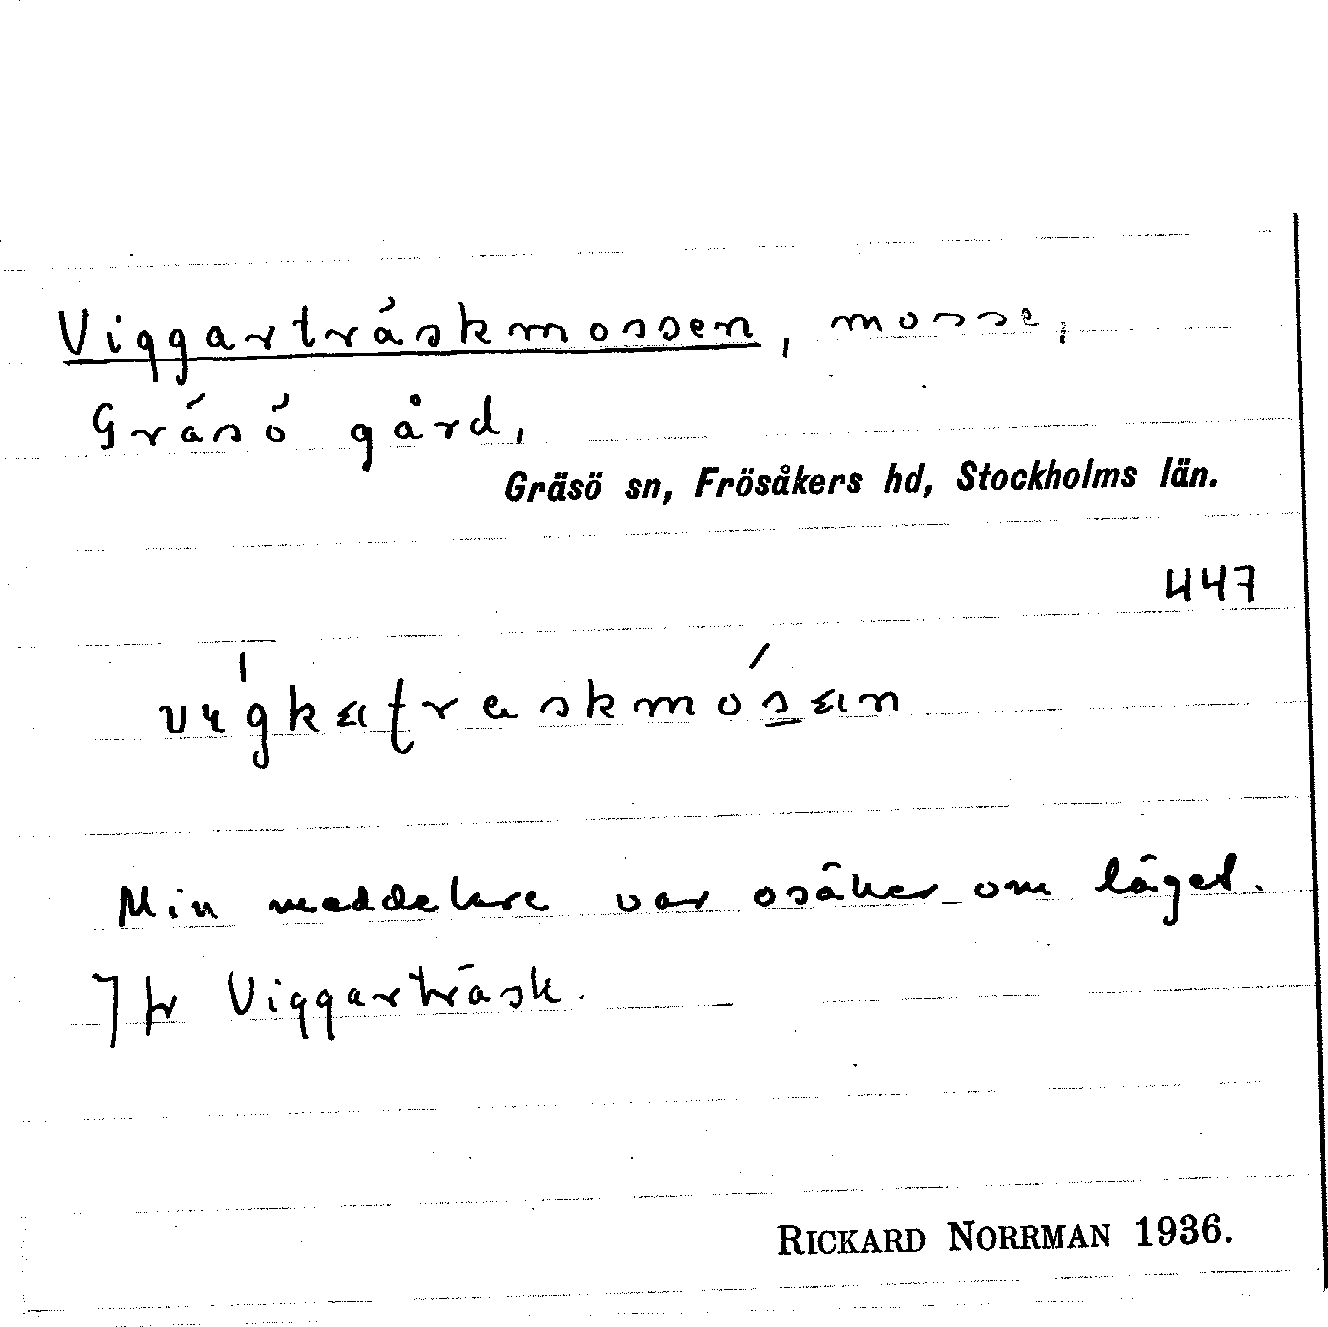 Viggarträskmossen, mosse,
Gräsö gård,
Gräsö sn, Frösåkers hd, Stockholms län.
447
Min meddelare var osäker om läget.
Jfr Viggarträsk.
RICKARD NORRMAN 1936.